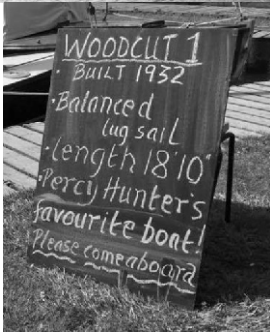 WOODCUT 1
· BUILT 1932
· Balanced
lug sail
· Length 18'10"
· Percy Hunter's
favourite boat!
Please come aboard